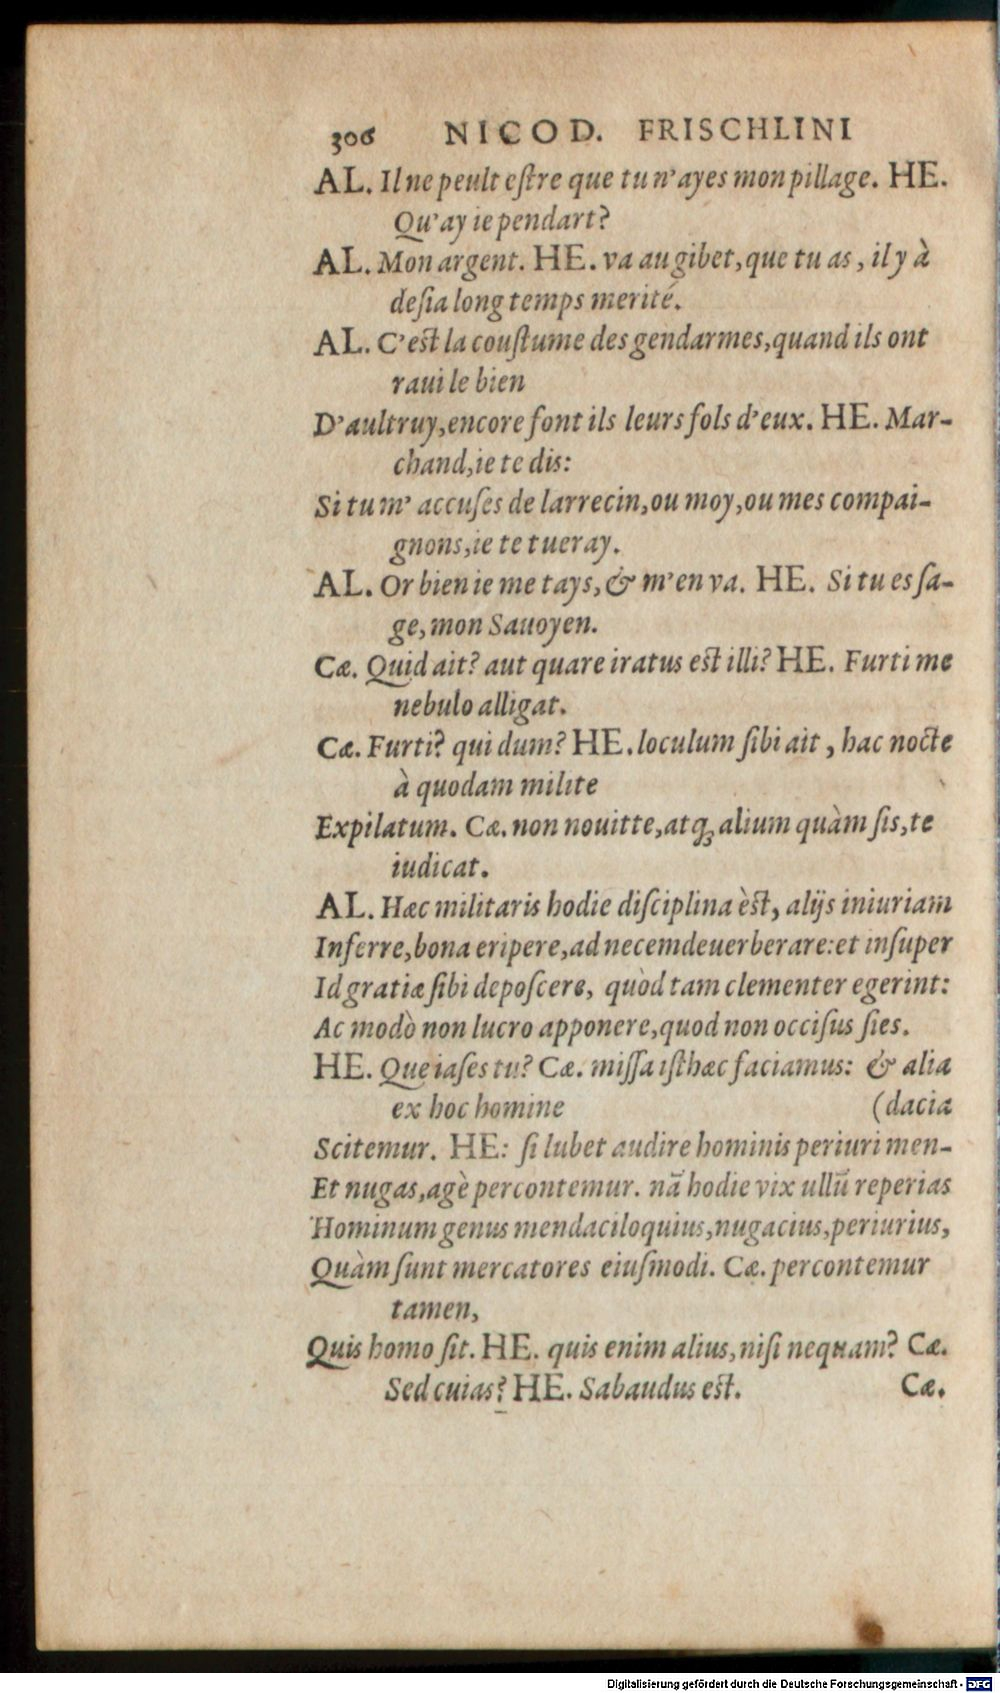 306 NICOD. FRISCHLINI
AL. Il ne peult estre que tu n'ayes mon pillage. HE.
Qu'ay ie pendart?
AL. Mon argent. HE. va au gibet, que tu as, il y à
desia long temps merité.
AL. C'est la coustume des gendarmes, quand ils ont
raui le bien
D'aultruy, encore font ils leurs fols d'eux. HE. Mar-
chand, ie te dis:
Si tu m' accuses de larrecin, ou moy, ou mes compai-
gnons, ie te tueray.
AL. Or bien ie me tays, & m'en va. HE. Si tu es sa-
ge, mon Sauoyen.
Cæ. Quid ait? aut quare iratus est illi? HE. Furti me
nebulo alligat.
Cæ. Furti? qui dum? HE. loculum sibi ait, hac nocte
à quodam milite
Expilatum. Cæ. non nouit te, atq; alium quàm sis, te
iudicat.
AL. Hæc militaris hodie disciplina èst, alijs iniuriam
Inferre, bona eripere, ad necem deuerberare: et insuper
Id gratiæ sibi deposcere, quòd tam clementer egerint:
Ac modò non lucro apponere, quod non occisus sies.
HE. Que iases tu? Cæ. missa isthæc faciamus: & alia
ex hoc homine (dacia
Scitemur. HE: si lubet audire hominis periuri men-
Et nugas, agè percontemur. nā hodie vix ullū reperias
Hominum genus mendaciloquius, nugacius, periurius,
Quàm sunt mercatores eiusmodi. Cæ. percontemur
tamen,
Quis homo sit. HE. quis enim alius, nisi nequam? Cæ.
Sed cuias? HE. Sabaudus est. Cæ.
Digitalisierung gefördert durch die Deutsche Forschungsgemeinschaft - DFG